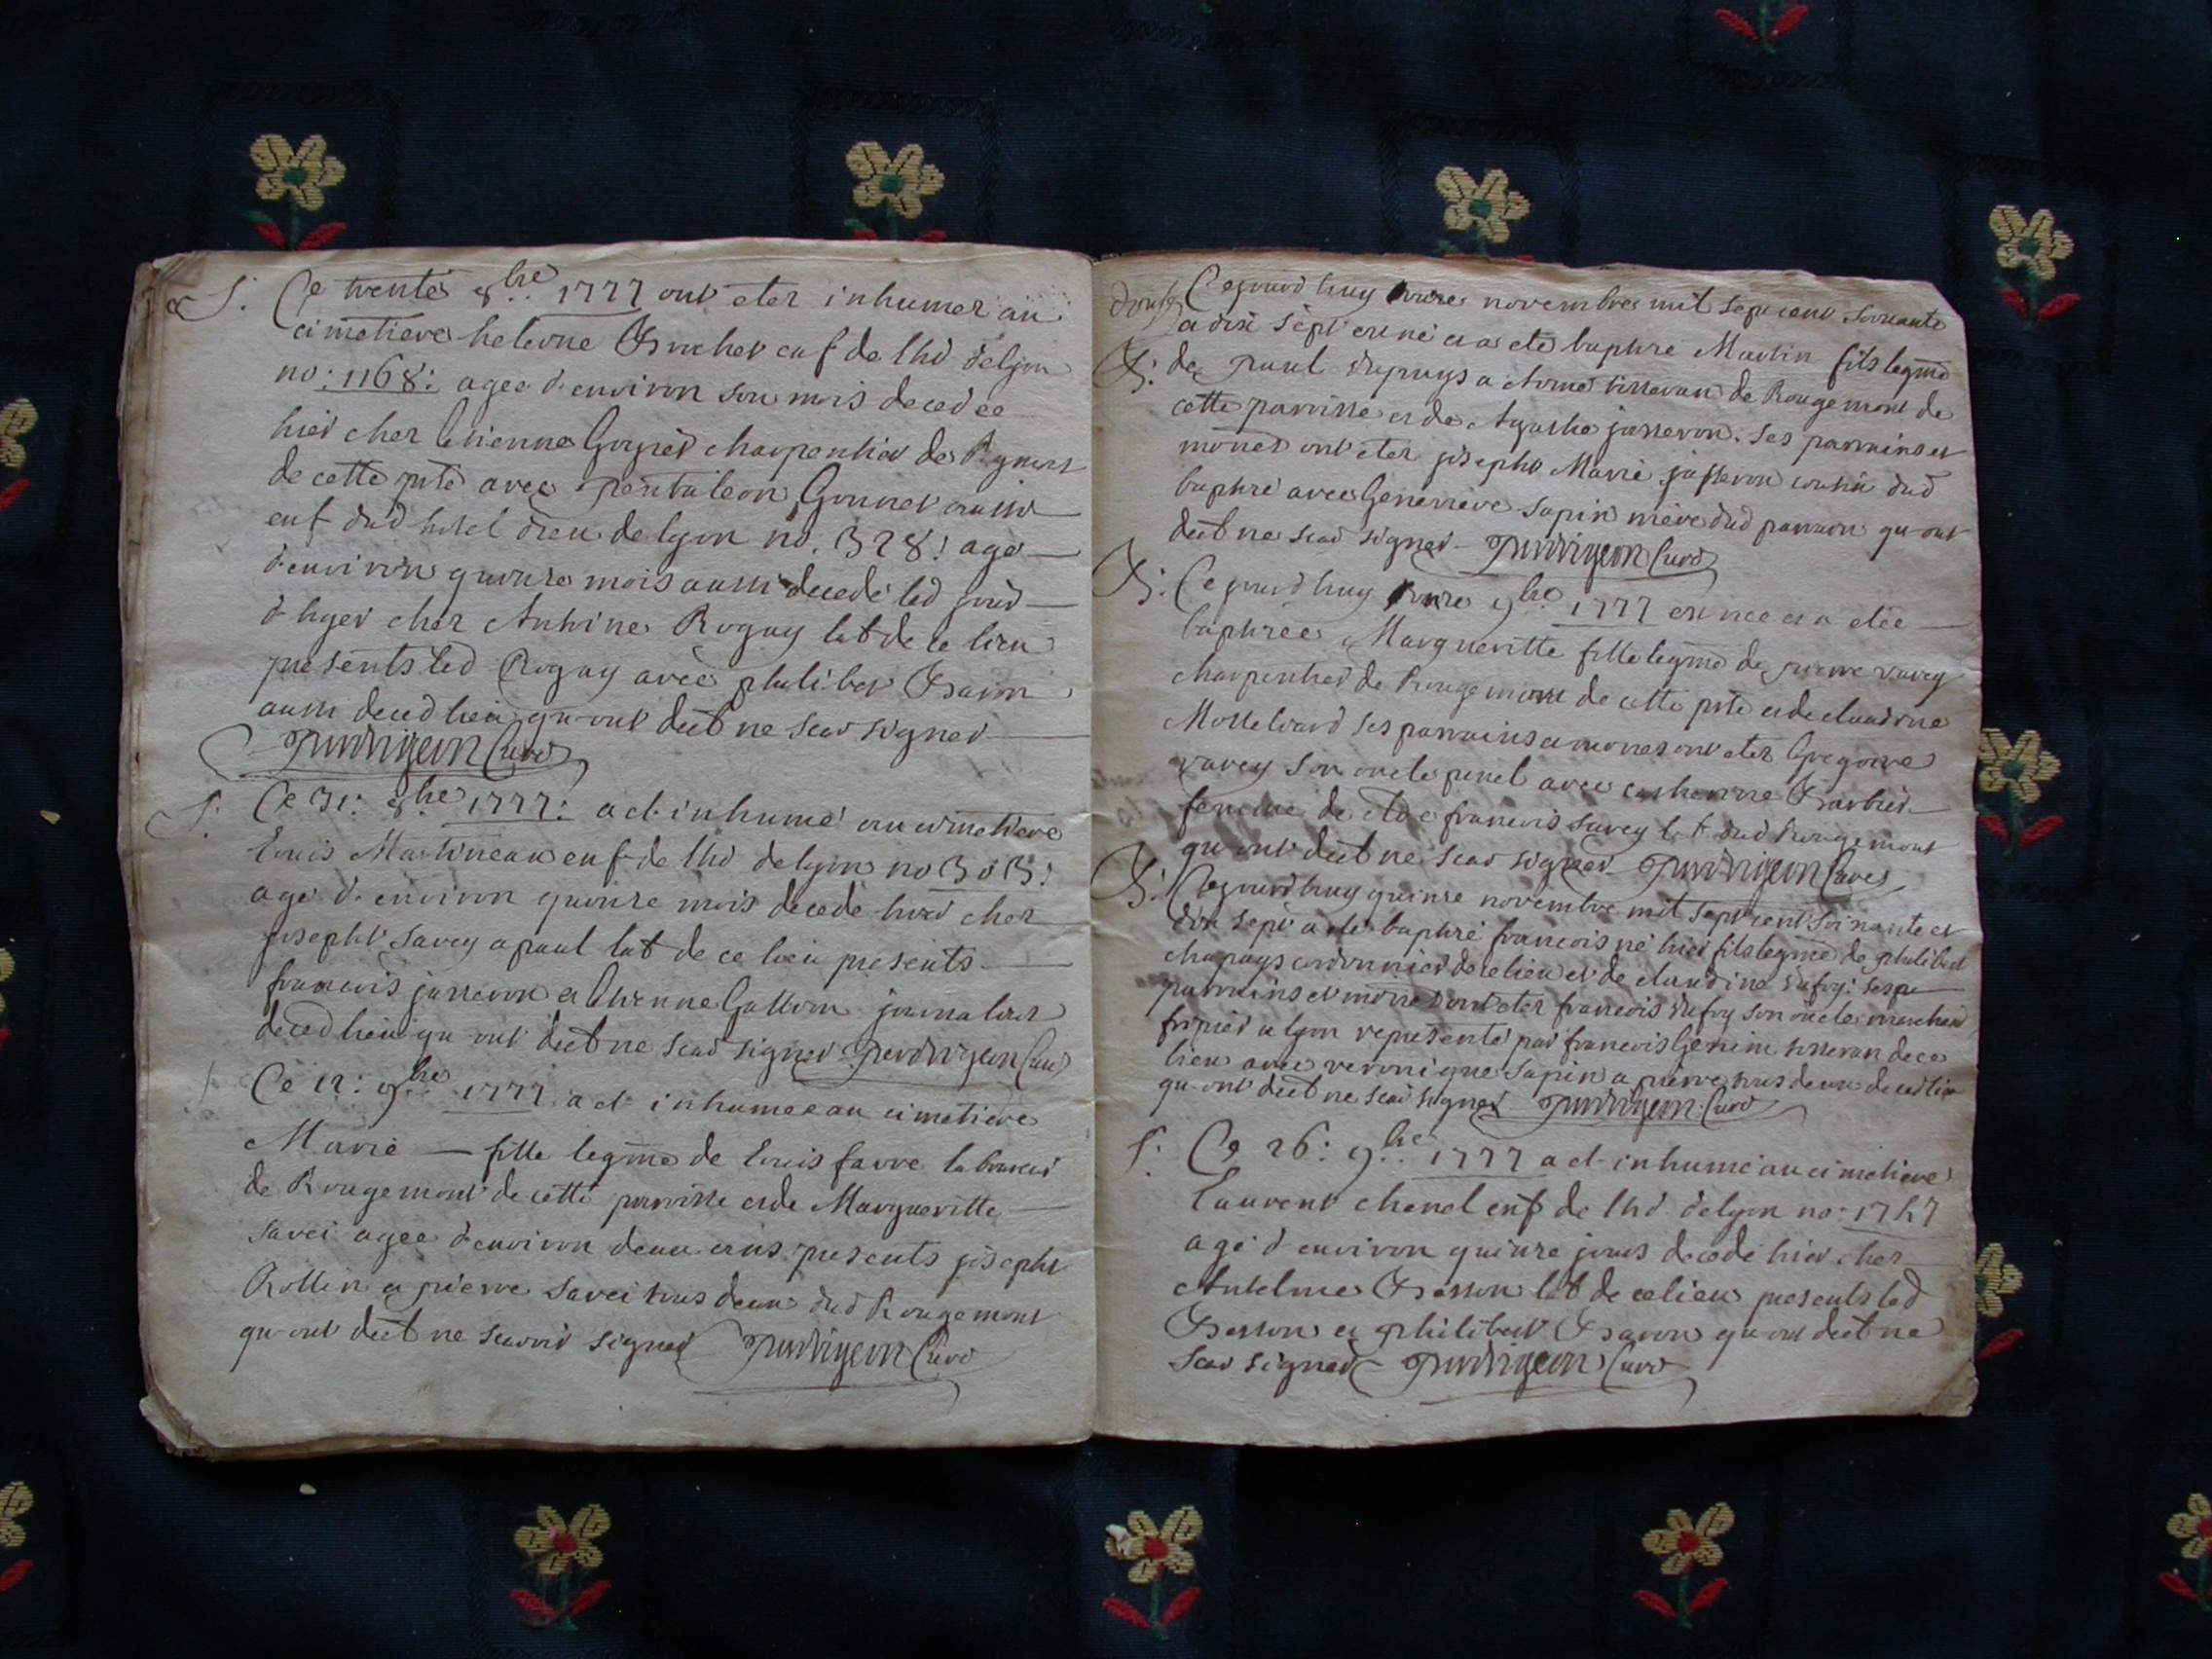 S. Ce trente 8bre 1777 ont eter inhumer au
cimetiere helene Brochet enf de lhd delyon
no: 1168: agee d'environ son mois decedee
hier chez Etienne Goyet charpentier de
de cette psse avec pentaleon Gonnet aussi
enf dud hotel dieu de lyon no. 328: age
d'environ quinze mois aussi decede led jour
d'hyer chez Antoine Rogay lab de ce lieu
presents led Rogay avec philibert Baron
aussi decedlieu qu ont dect ne scav signer
Curé
S. Ce 31: 8bre 1777: a et inhumé au cimetiere
Louis Martineau enf de lhd delyon no 303:
age d'environ quinze mois decede hier chez
joseph Savey apaul lab de ce lieu presents
francois jasseron et Etienne Gallion journalier
decedlieu qu ont dect ne scav signer Curé
Ce 12: 9bre 1777 a et inhumee au cimetiere
Marie — fille legme de Louis favre laboureur
de Rougemont de cette parroisse et de Margueritte
Savei agee d'environ deux ans presents joseph
Rollin et pierre Savei tous deux dud Rougemont
qu ont dect ne scavoir signer Curé
douse Cejourdhuy novembre mil sept cent soixante
a dix sept est né et a ete baptisé Martin fils legme
B: de paul dupuys a tisseran de Rougemont de
cette parroisse et de Agathe jasseron. ses parrains et
mones ont eter joseph Marie jasseron cousin dud
baptisé avec Genevieve Sapin mere dud parrain qu ont
dect ne scav signer Curé
B: Cejourdhuy 9bre 1777 est nee et a etee
baptisee Margueritte fille legme de pierre varey
charpentier de Rougemont de cette psse et de claudine
Mollelivard ses parrains et mones ont eter Gregoire
varey son oncle pnel avec catherine Barbier
femme de francois Savey lab dud Rougemont
qu ont dect ne scav signer Curé
B: Cejourdhuy quinse novembre mil sept cent soixante et
dix sept a ete baptisé francois né hier fils legme de philibert
chapuys cordonnier de ce lieu et de claudine dufoy: ses
parrains et mones ont eter francois dufoy son oncle marchand
fripier a lyon representé par francois Genin tisseran de ce
lieu avec veronique Sapin a pierre tous deux decedlieu
qu ont dect ne scav signer Curé
S: Ce 26: 9bre 1777 a et inhumé au cimetiere
Laurent chanel enf de lhd delyon no: 1747
agé d'environ quinze jours decede hier chez
Antelme Besson lab de ce lieu presents led
Besson et philibert Baron qu ont dect ne
scav signer Curé